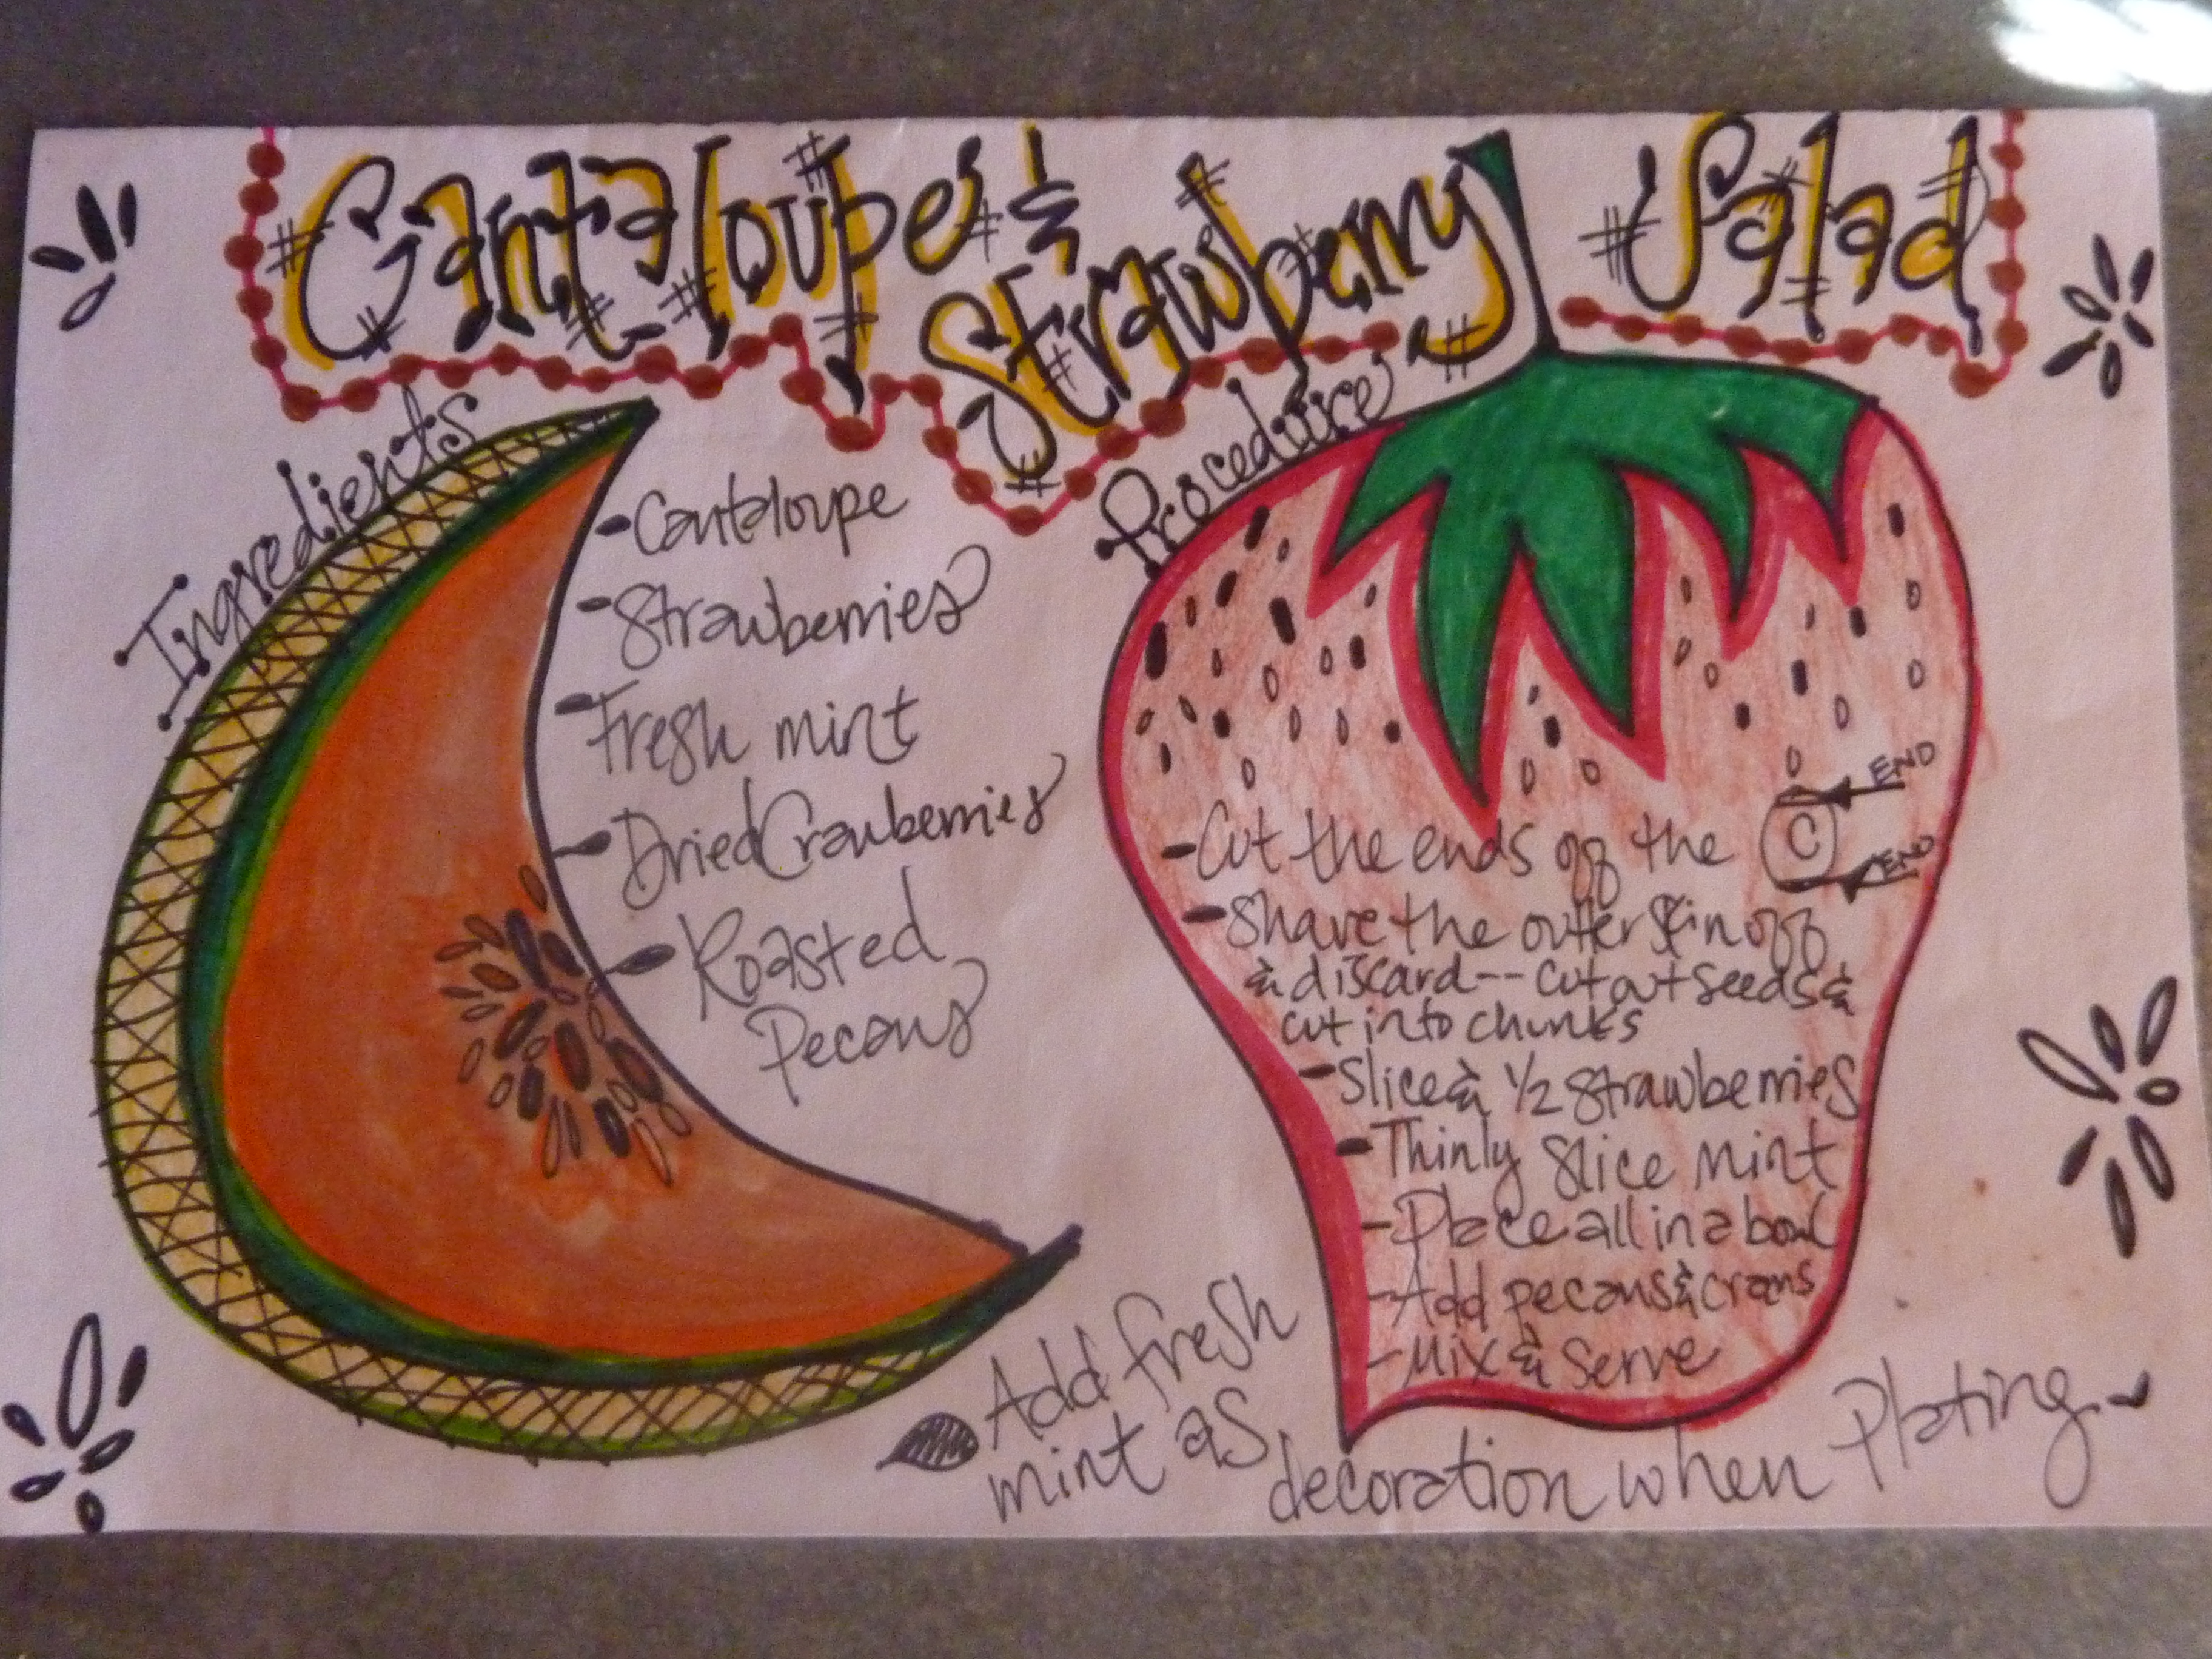 Cantaloupe &
Strawberry Salad
Ingredients
- Cantaloupe
- Strawberries
- Fresh mint
- Dried Cranberries
- Roasted
Pecans
Procedure
END
- Cut the ends off the C
END
- Shave the outer skin off
& discard -- cut out seeds &
cut into chunks
- Slice & 1/2 strawberries
- Thinly slice mint
- Place all in a bowl
- Add pecans & crans
- Mix & Serve
Add fresh
mint as
decoration when Plating.